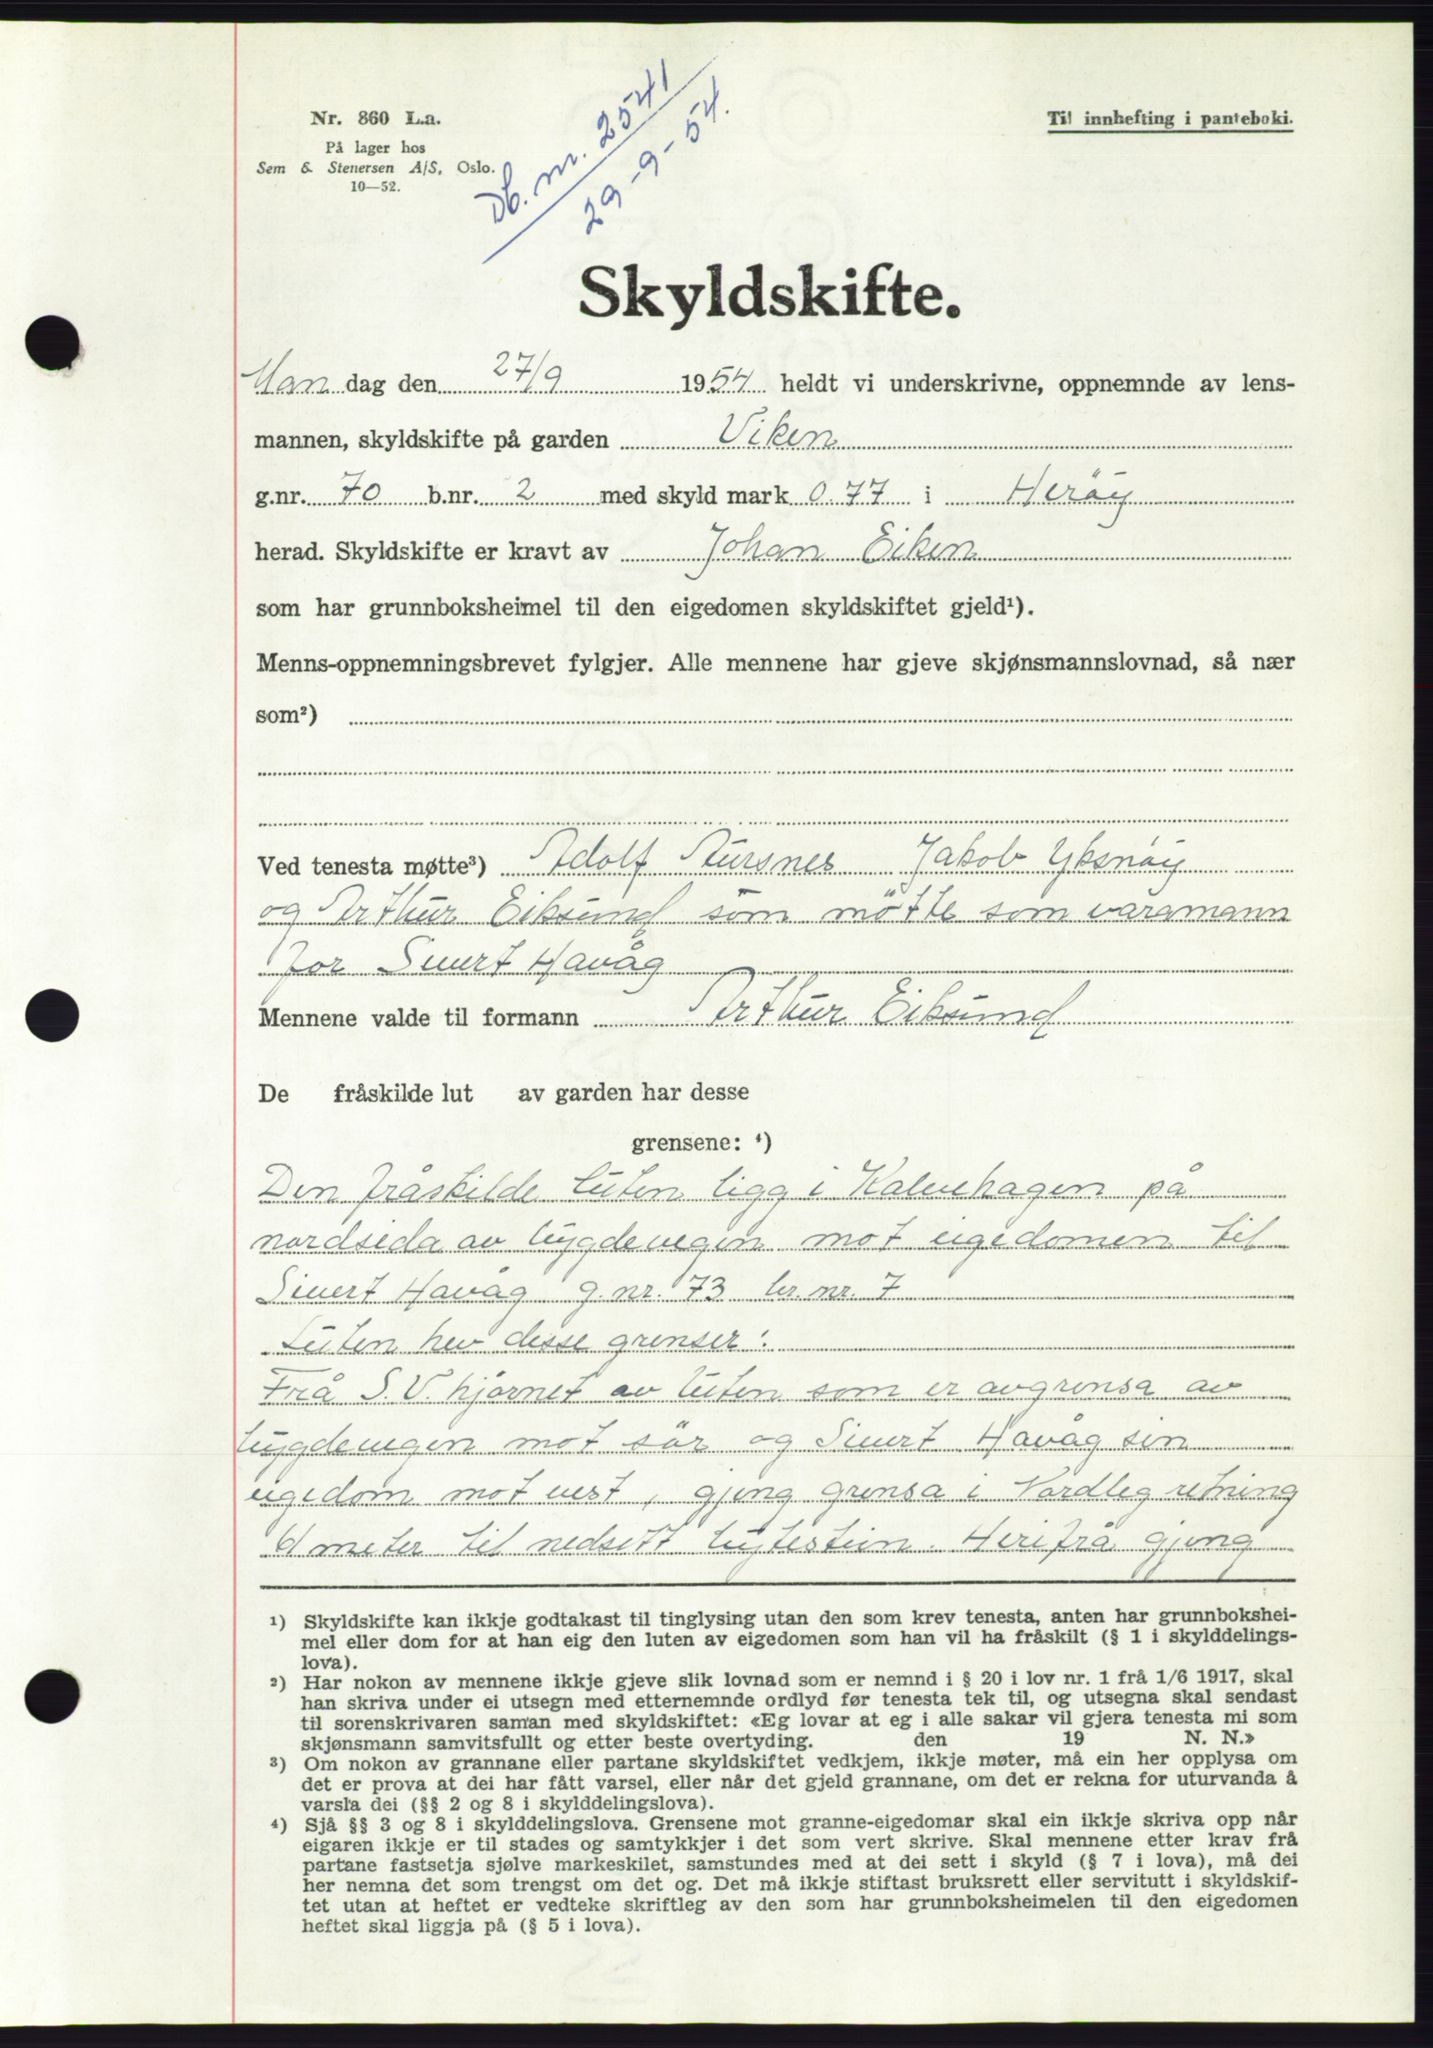 Nr. 860 L.a.
På lager hos
Sem & Stenersen A/S, Oslo.
10—52.
Db. nr. 2541
29-9-54.
Til innhefting i panteboki.
Skyldskifte.
Man dag den 27/9 1954 heldt vi underskrivne, oppnemnde av lens-
mannen, skyldskifte på garden Viken
g.nr. 70 b.nr. 2 med skyld mark 0.77 i Heröy
herad. Skyldskifte er kravt av Johan Eiken
som har grunnboksheimel til den eigedomen skyldskiftet gjeld¹).
Menns-oppnemningsbrevet fylgjer. Alle mennene har gjeve skjønsmannslovnad, så nær
som²)
Ved tenesta møtte³) Adolf Aursnes Jakob Yksnöy
og Arthur Eiksund som mötte som varamann
for Sivert Havåg
Mennene valde til formann Arthur Eiksund
De fråskilde lut av garden har desse
grensene: ⁴)
Den fråskilde luten ligg i Kalvehagen på
nordsida av bygdevegen mot eigedomen til
Sivert Havåg g.nr. 73 br.nr. 7
Luten hev desse grenser:
Frå S.V. hjørnet av luten som er avgrensa av
bygdevegen mot sör og Sivert Havåg sin
eigedom mot vest, gjeng grensa i Nordleg retning
meter til nedsett bytestein. Herifrå gjeng
¹) Skyldskifte kan ikkje godtakast til tinglysing utan den som krev tenesta, anten har grunnbokshei-
mel eller dom for at han eig den luten av eigedomen som han vil ha fråskilt (§ 1 i skylddelings-
lova).
²) Har nokon av mennene ikkje gjeve slik lovnad som er nemnd i § 20 i lov nr. 1 frå 1/6 1917, skal
han skriva under ei utsegn med etternemnde ordlyd før tenesta tek til, og utsegna skal sendast
til sorenskrivaren saman med skyldskiftet: «Eg lovar at eg i alle sakar vil gjera tenesta mi som
skjønsmann samvitsfullt og etter beste overtyding. den 19 N. N.»
³) Om nokon av grannane eller partane skyldskiftet vedkjem, ikkje møter, må ein her opplysa om
det er prova at dei har fått varsel, eller når det gjeld grannane, om det er rekna for uturvanda å
varsla dei (§§ 2 og 8 i skylddelingslova).
⁴) Sjå §§ 3 og 8 i skylddelingslova. Grensene mot granne-eigedomar skal ein ikkje skriva opp når
eigaren ikkje er til stades og samtykkjer i det som vert skrive. Skal mennene etter krav frå
partane fastsetja sjølve markeskilet, samstundes med at dei sett i skyld (§ 7 i lova), må dei
her nemna det som trengst om det og. Det må ikkje stiftast bruksrett eller servitutt i skyldskif-
tet utan at heftet er vedteke skriftleg av den som har grunnboksheimelen til den eigedomen
heftet skal liggja på (§ 5 i lova).